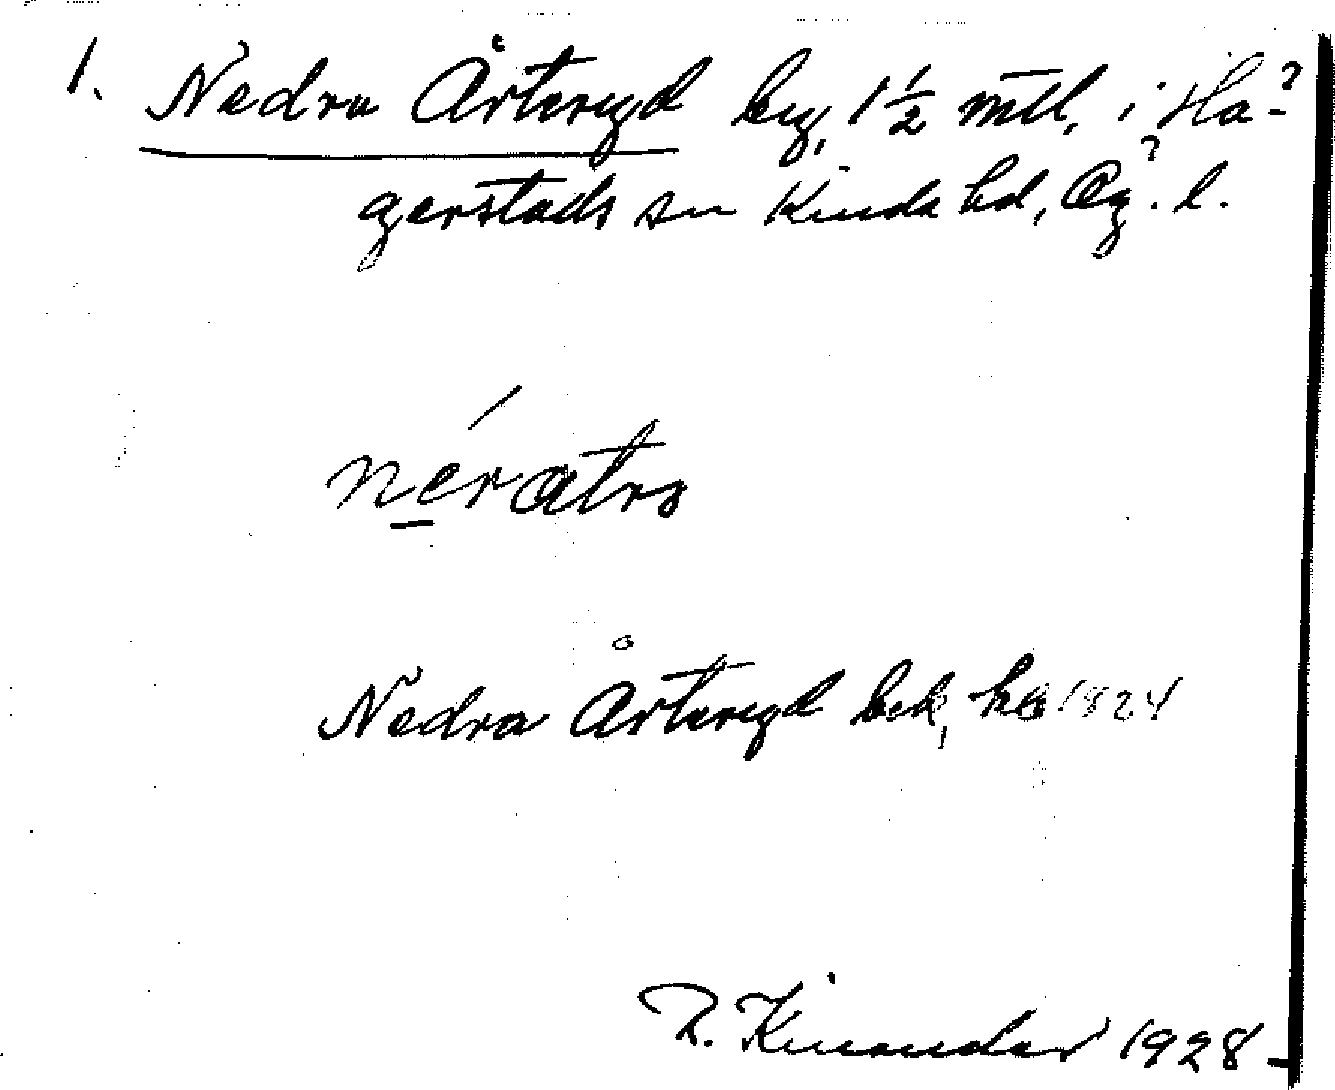 1. Nedra Årteryd by, 1½ mtl. i Ha-
gerstads sn Kinda hd, Ög. l.
nératro
Nedra Årteryd bek, hb 1824
R. Kinander 1928